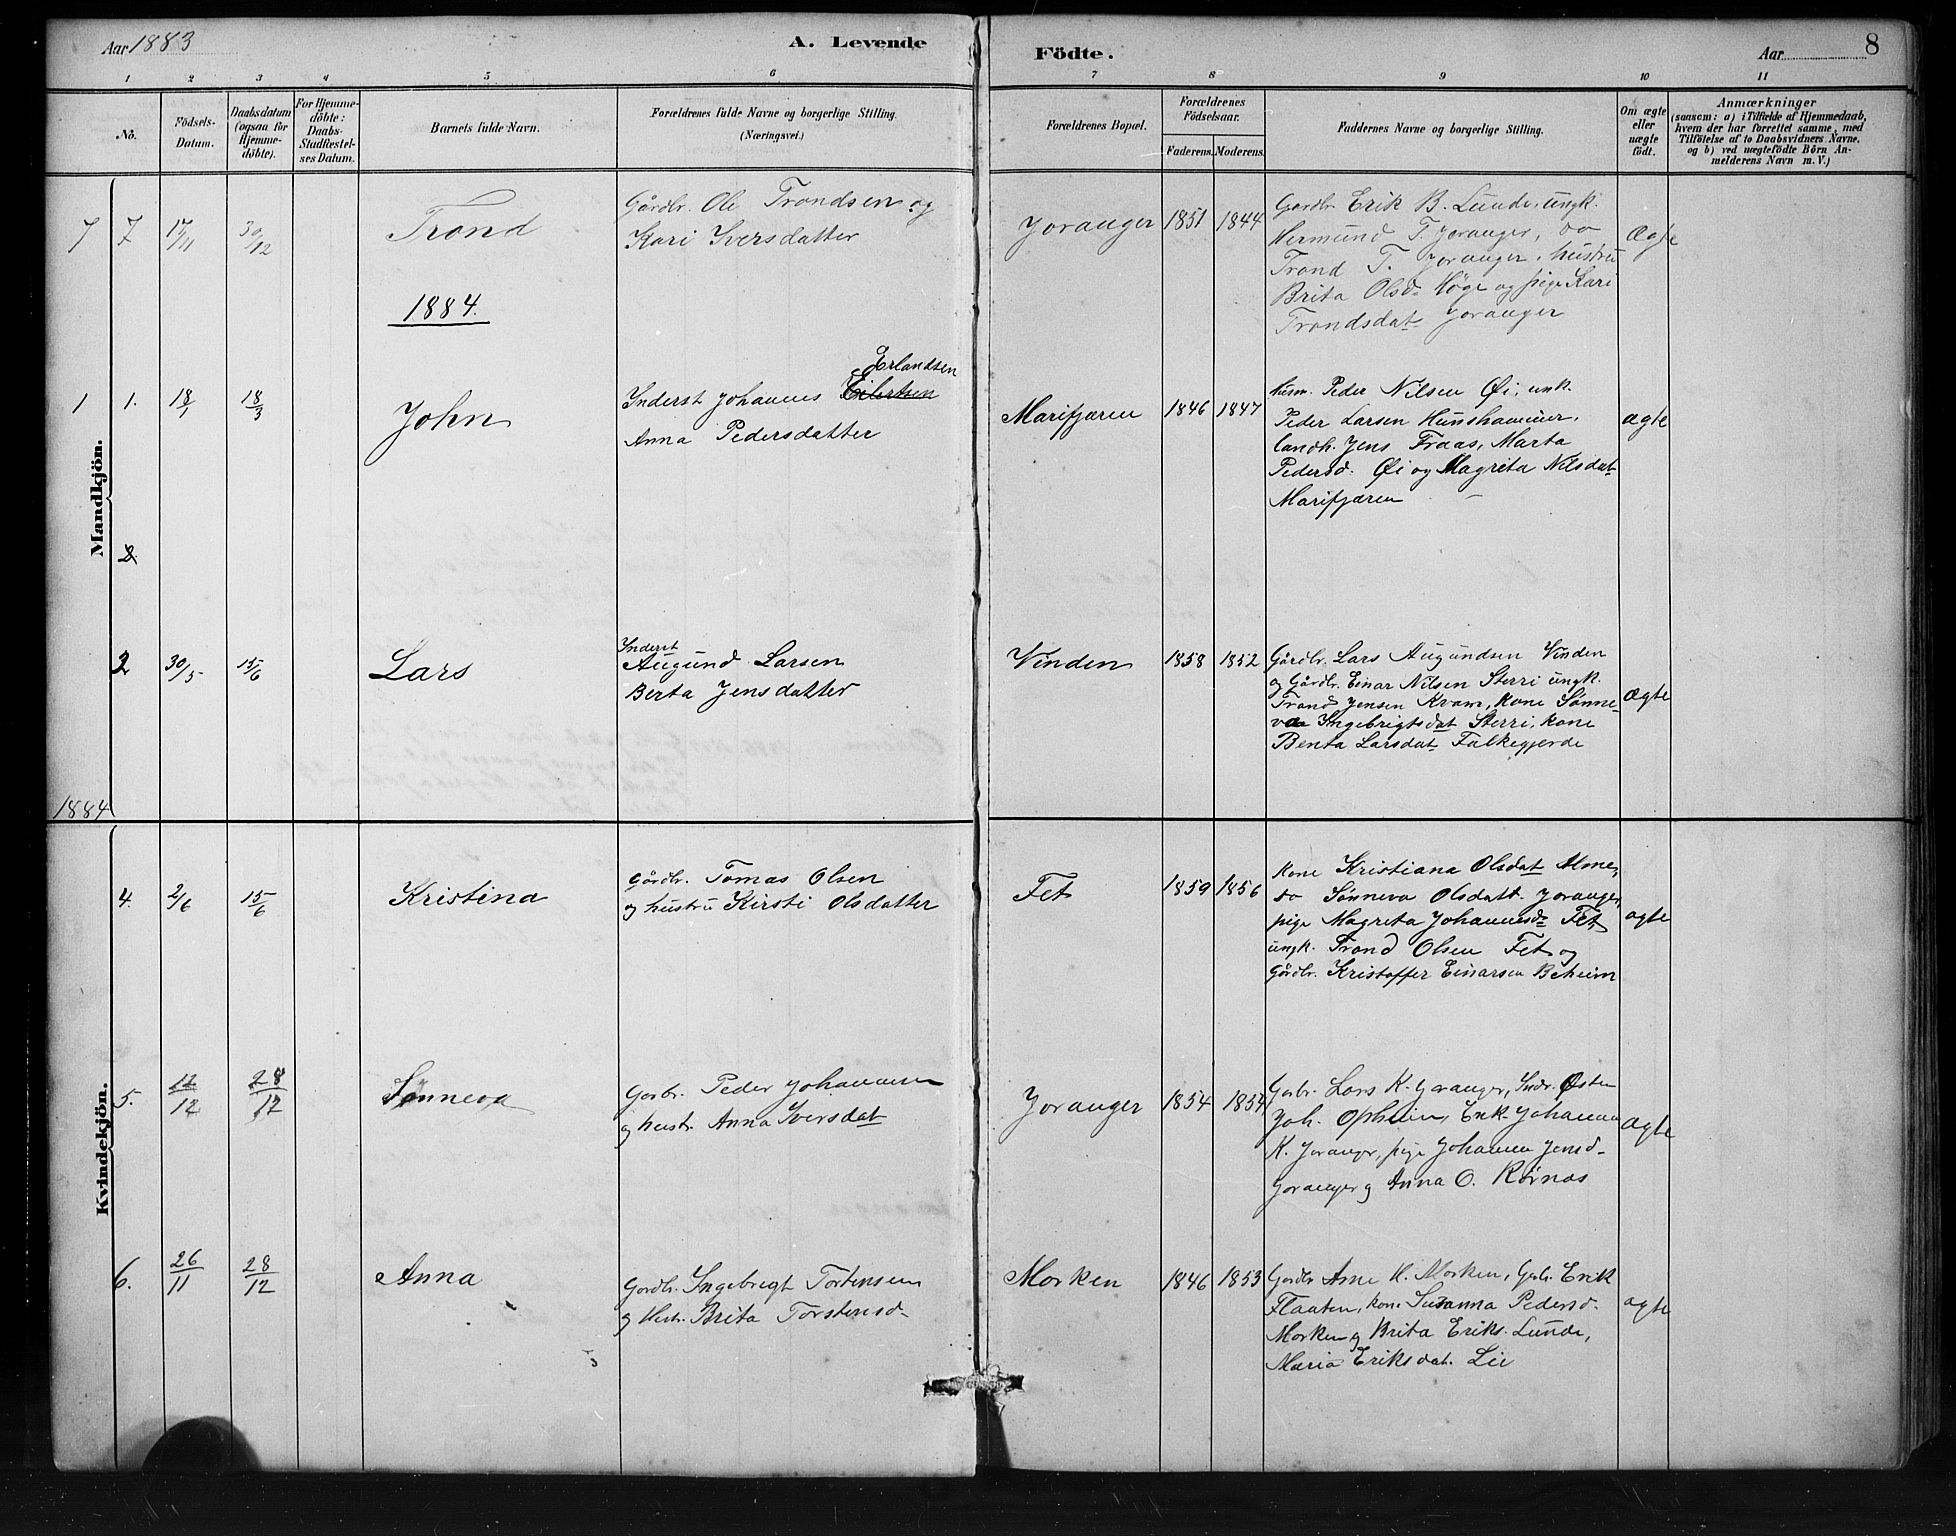 Aar 1883
A. Levende
Födte.
Aar
8
1 2 3 4 5 6 7 8 9 10 11
No.
Födsels-
Datum.
Daabsdatum
(ogsaa for
Hjemme-
döbte).
For Hjemme-
döbte:
Daabs-
Stadfestel-
ses Datum.
Barnets fulde Navn.
Forældrenes fulde Navne og borgerlige Stilling.
(Næringsvei.)
Forældrenes Bopæl.
Forældrenes
Födselsaar.
Faderens. Moderens.
Faddernes Navne og borgerlige Stilling.
Om ægte
eller
uægte
födt.
Anmærkninger
(saasom: a) i Tilfælde af Hjemmedaab,
hvem der har forrettet samme, med
Tilföielse af to Daabsvidners Navne,
og b) ved uægtefödte Börn An-
melderens Navn m. V.)
Mandkjön.
7 7 17/11 30/12
Trond
Gårdbr. Ole Trondsen og
Kari Iversdatter
Joranger 1851 1844
Gardbr. Erik B. Lunde, ungk.
Hermund T. Joranger, do
Trond T. Joranger, hustru
Brita Olsd. Høge og pige Kari
Trondsdat Joranger
Ægte
1884.
1 1. 18/1 18/3
John
Erlandsen
Inderst Johannes Eilertsen
Anna Pedersdatter
Marifjæren 1846 1847
husm. Peder Nilsen Øi, unk.
Peder Larsen Hunshammer,
landh. Jens Fraas, Marta
Pedersd. Øi og Magrita Nilsdat
Marifjæren
ægte
2
2 30/5 15/6
Lars
Inderst
Augund Larsen
Berta Jensdatter
Vinden 1858 1852
Gårdbr. Lars Augundsen Vinden
og Gårdbr. Einar Nilsen Sterri ungk.
Trond Jensen Kvam, kone Sønne-
va Ingebrigtsdat Sterri, kone
Benta Larsdat Falkegjerde
Ægte
1884
Kvindekjön.
4. 2/6 15/6
Kristina
Gårdbr. Tomas Olsen
og hustru Kirsti Olsdatter
Fet 1859 1856
kone Kristiana Olsdat Alme,
do Sønneva Olsdatt. Joranger,
pige Magreta Johannesd. Fet,
ungk. Trond Olsen Fet og
Gårdbr. Kristoffer Einarsen Beheim
ægte
5. 12/12 28/12
Sønneva
Garbr. Peder Johannesen
og hustr. Anna Iversdat
Joranger 1854 1854
Garbr. Lars K. Joranger, Indr. Østen
Joh. Opheim, Enk. Johannes
K. Joranger, pige Johanna Jensd.
Joranger og Anna O. Rørnas
Ægte
6. 26/11 28/12
Anna
Gardbr. Ingebrigt Tortensen
og Hustr. Brita Torstensd.
Morken 1846 1853
Gardbr. Arne H. Morken, Garbr. Erik
Flaaten, kone Susanna Pedersd.
Morken og Brita Eriks. Lunde,
Maria Eriksdat. Lie
ægte